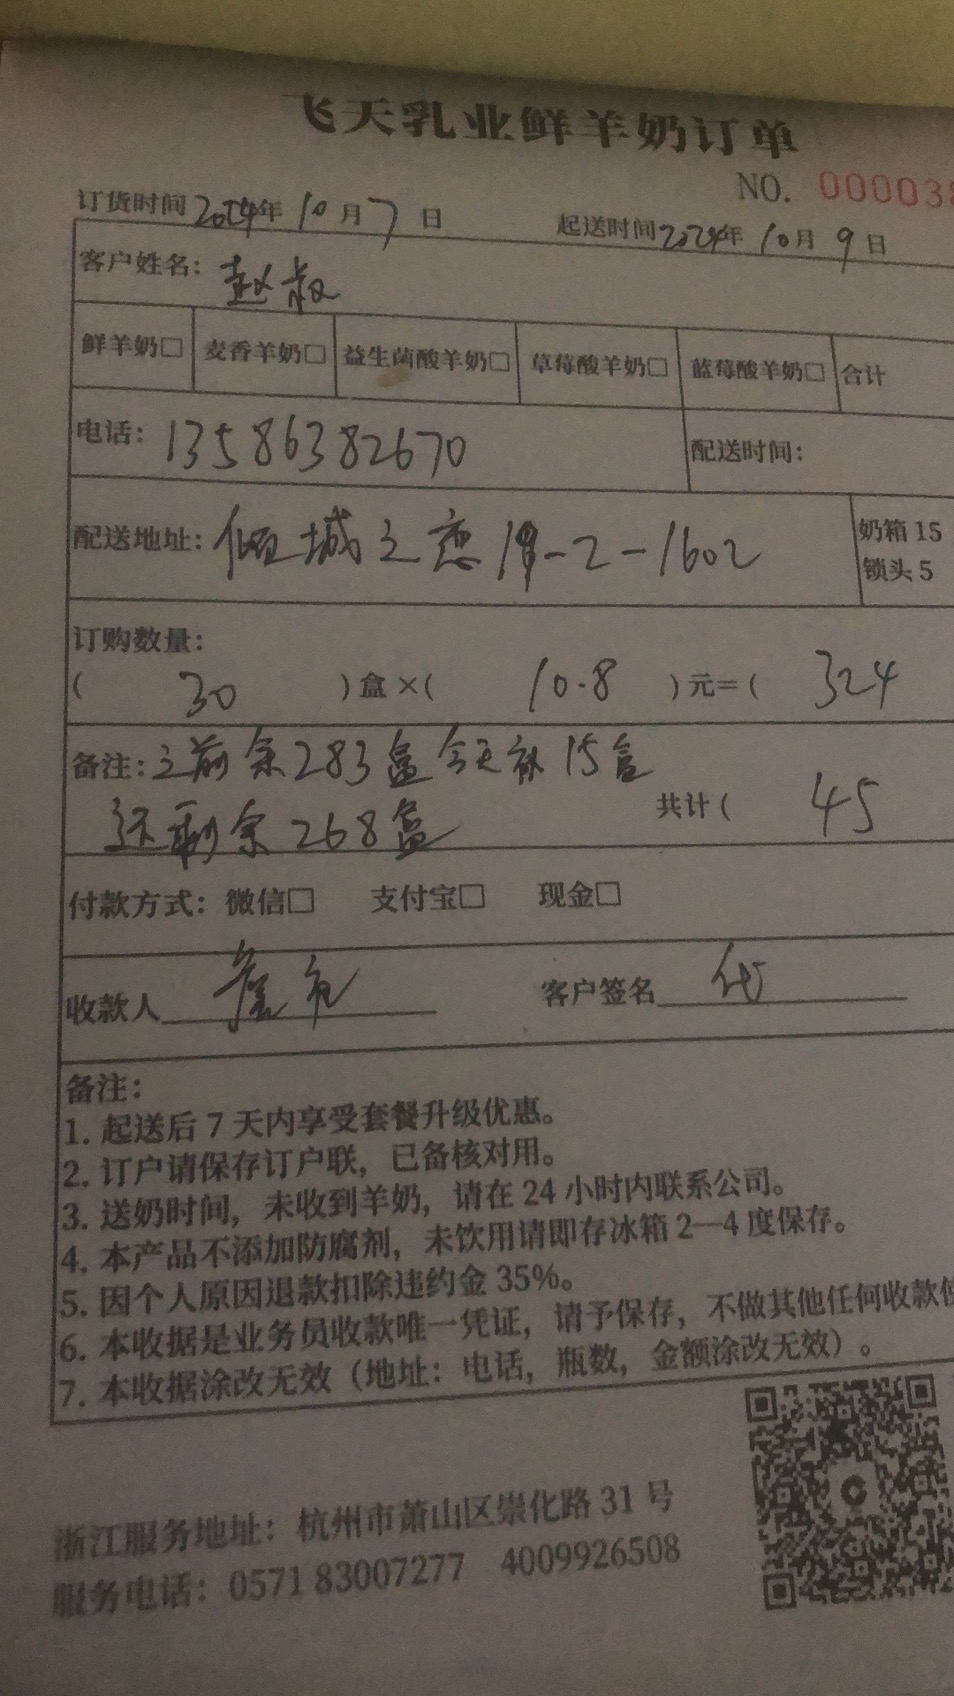 飞天乳业鲜羊奶订单
NO. 000038
订货时间2024年10月7日 起送时间2024年10月9日
客户姓名：赵叔
鲜羊奶□ 麦香羊奶□ 益生菌酸羊奶□ 草莓酸羊奶□ 蓝莓酸羊奶□ 合计
电话：13586382670 配送时间：
配送地址：倾城之恋19-2-1602 奶箱 15
锁头 5
订购数量：
( 30 ) 盒 ×( 10.8 ) 元＝( 324
备注：之前余283盒今天补15盒
还剩余268盒 共计 ( 45
付款方式：微信□ 支付宝□ 现金□
收款人 客户签名 代
备注：
1. 起送后 7 天内享受套餐升级优惠。
2. 订户请保存订户联，已备核对用。
3. 送奶时间，未收到羊奶，请在 24 小时内联系公司。
4. 本产品不添加防腐剂，未饮用请即存冰箱 2—4 度保存。
5. 因个人原因退款扣除违约金 35%。
6. 本收据是业务员收款唯一凭证，请予保存，不做其他任何收款
7. 本收据涂改无效（地址：电话，瓶数，金额涂改无效）。
浙江服务地址：杭州市萧山区崇化路 31 号
服务电话：0571 83007277 4009926508